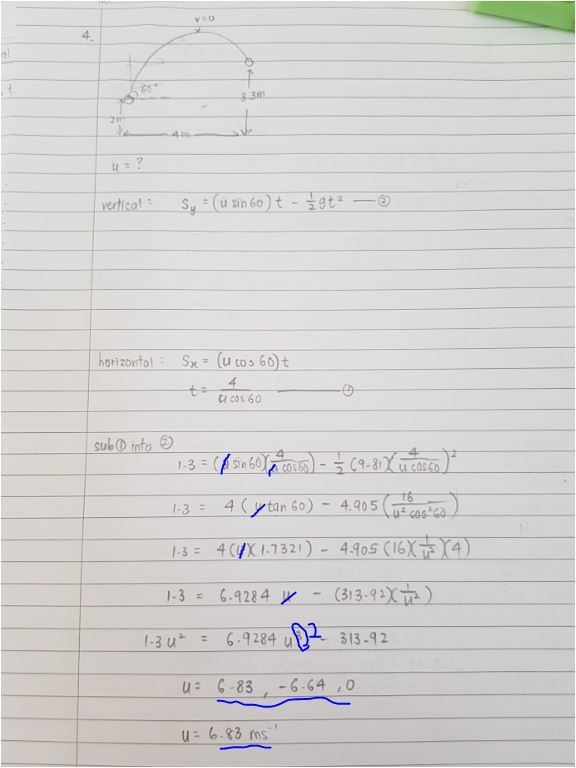 4.
v=0
60°
3.3m
2m
4m
u = ?
vertical : Sy = (u sin 60) t - ½gt² — ②
horizontal : Sx = (u cos 60) t
t = 4/(u cos 60) — ①
sub ① into ②
1.3 = (u sin 60)(4/(u cos 60)) - ½ (9.81)(4/(u cos 60))²
1.3 = 4 (u tan 60) - 4.905 (16/(u² cos² 60))
1.3 = 4(u)(1.7321) - 4.905 (16)(1/u²)(4)
1.3 = 6.9284 u - (313.92)(1/u²)
1.3 u² = 6.9284 u³ 2 - 313.92
u = 6.83 , -6.64 , 0
u = 6.83 ms⁻¹